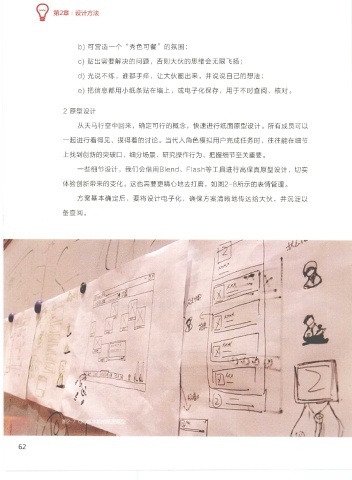 第2章：设计方法
b) 可营造一个“秀色可餐”的氛围；
c) 贴出需要解决的问题，否则大伙的思绪会无限飞扬；
d) 光说不练，谁都手痒，让大伙画出来，并说说自己的想法；
e) 把信息都用小纸条贴在墙上，或电子化保存，用于不时查阅、核对。
2 原型设计
从天马行空中回来，确定可行的概念，快速进行纸面原型设计。所有成员可以
一起进行看得见、摸得着的讨论。当代入角色模拟用户完成任务时，往往能在细节
上找到创新的突破口，细分场景，研究操作行为，把握细节至关重要。
一些细节设计，我们会借用Blend、Flash等工具进行高保真原型设计，切实
体验创新带来的变化，这也需要更精心地去打磨，如图2-8所示的表情管理。
方案基本确定后，要将设计电子化，确保方案清晰地传达给大伙，并沉淀以
备查阅。
62